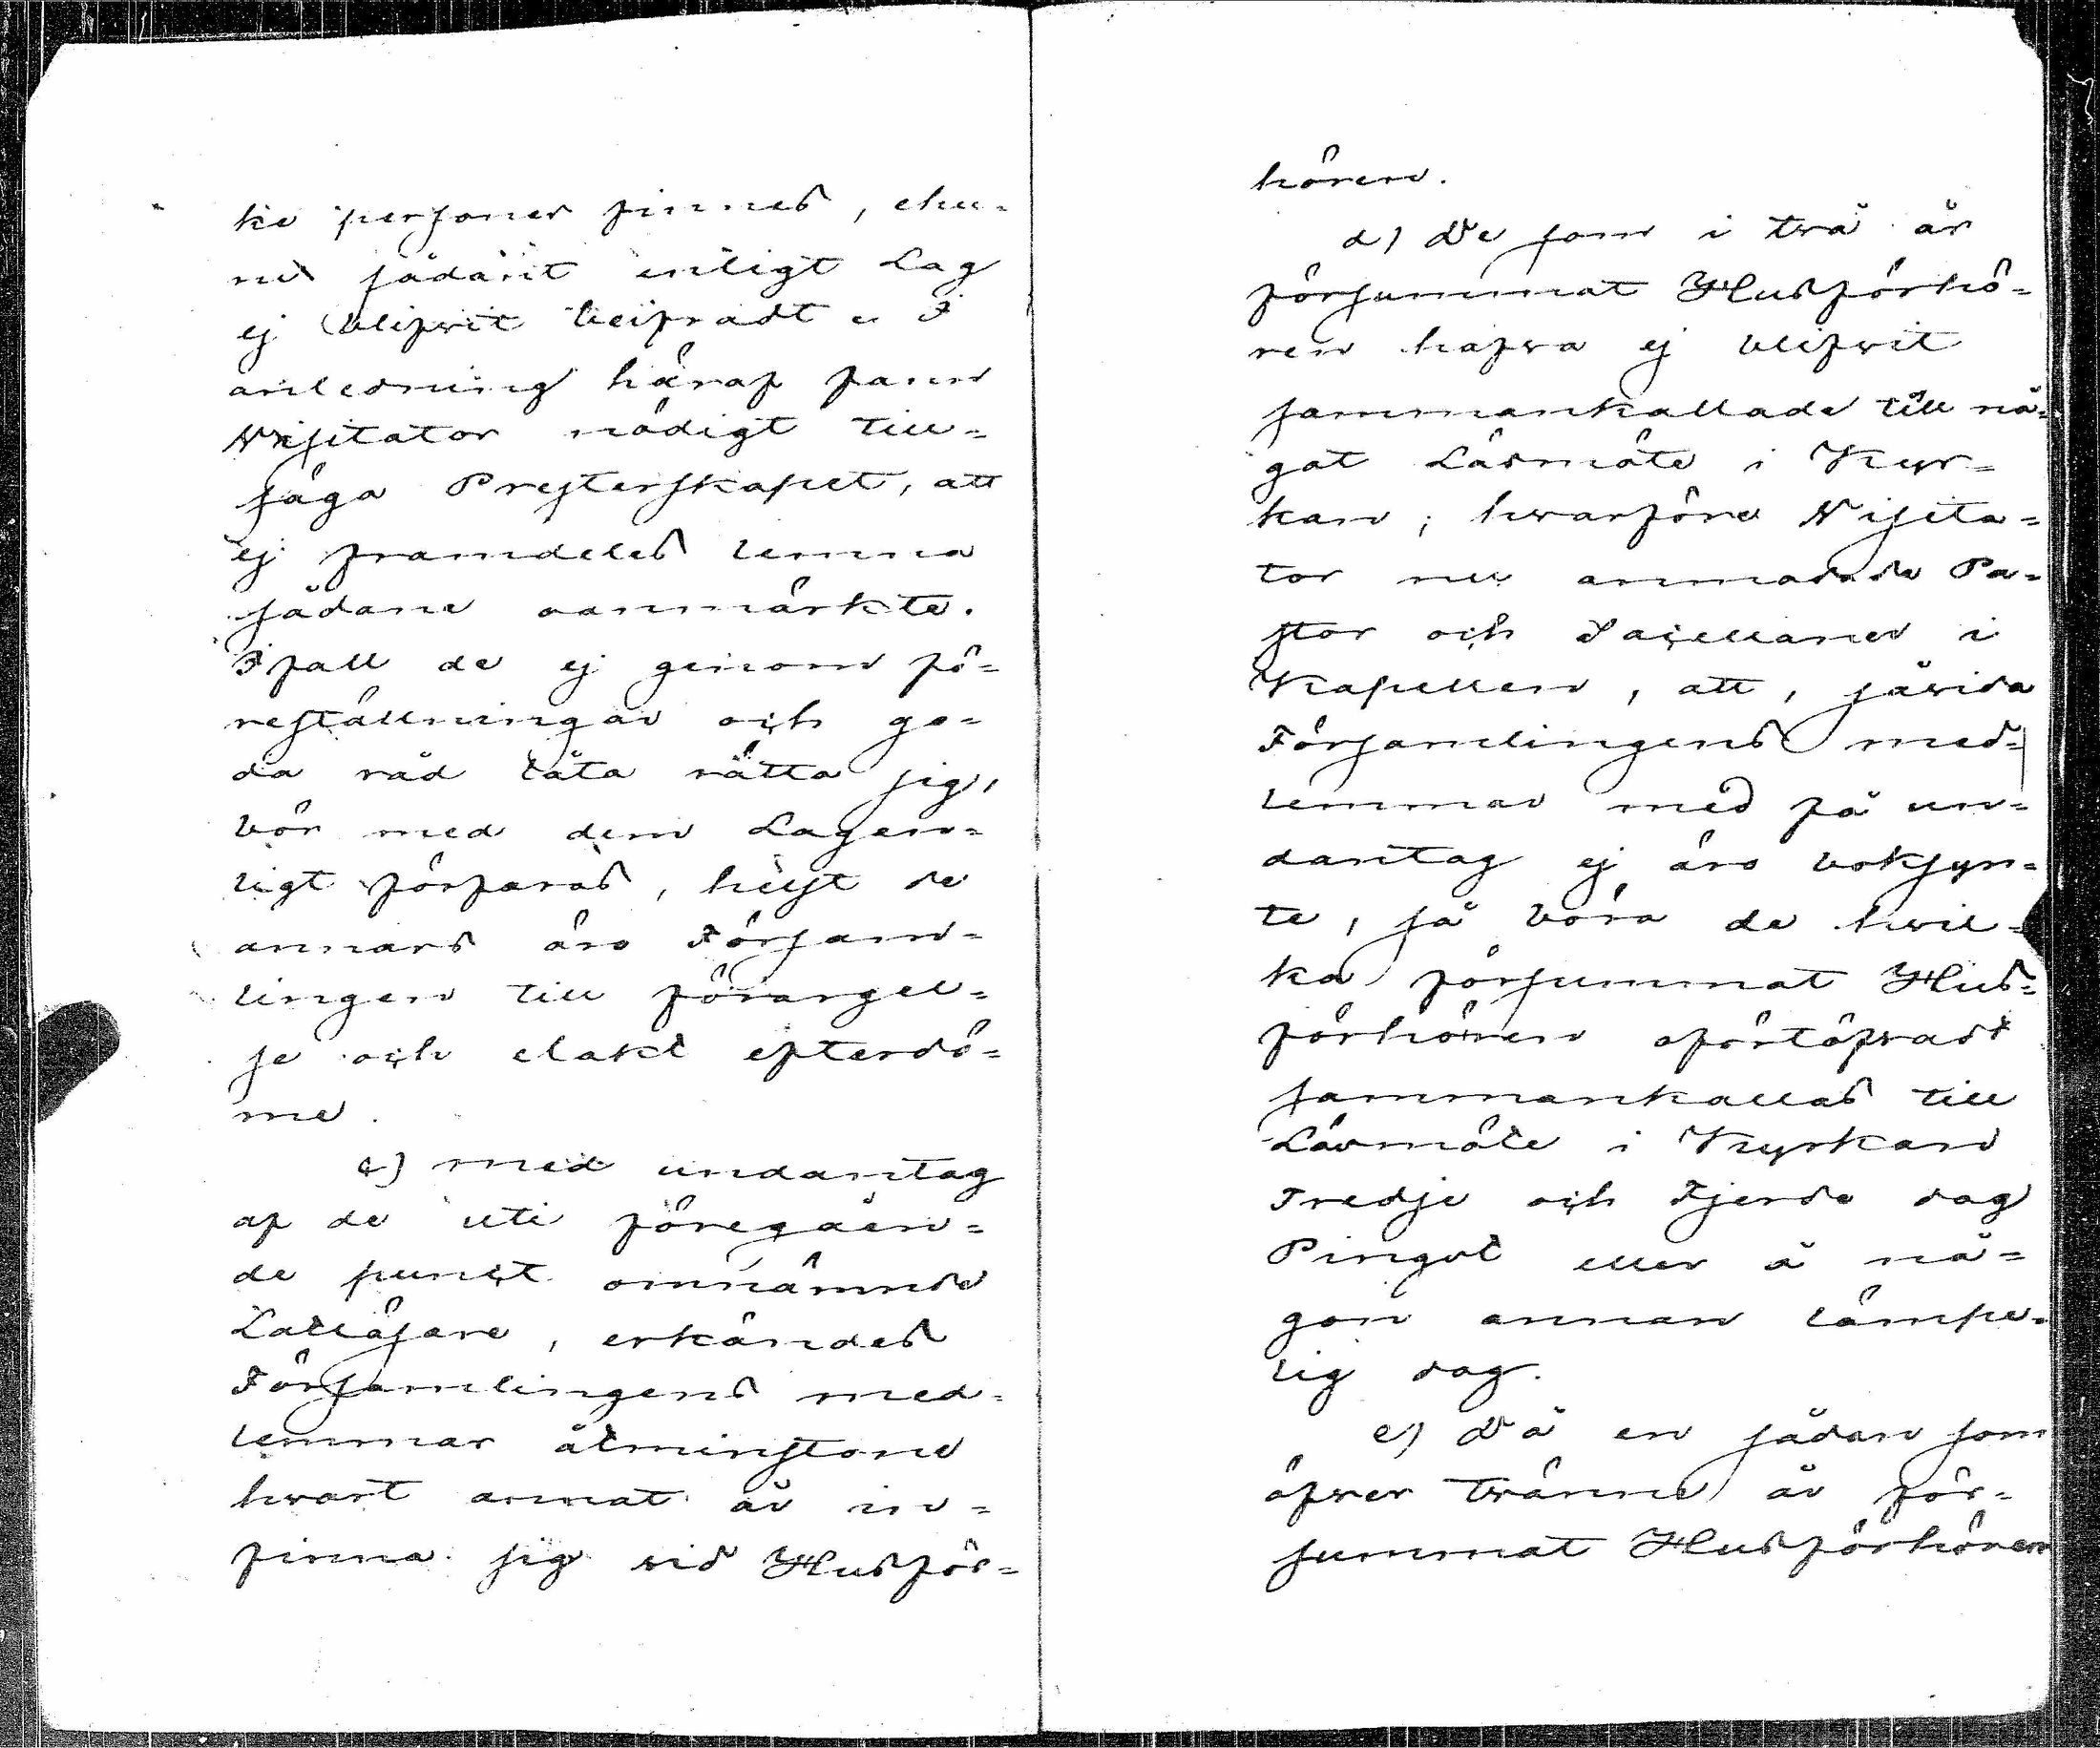 ke personer finnes, ehu-
ru sådant enligt Lag
ej blifwit beifradt. I
anledning häraf fann
Visitator nödigt till-
säga Presterskapet, att
ej framdeles lemna
sådane oanmärkte.
Ifall de ej genom fö-
reställningar och go-
da råd låta rätta sig,
bör med dem Lagen-
ligt förfaras, helst de
annars äro Försam-
lingen till förargel-
se och elakt efterdö-
me.
c) med undantag
af de uti föregåen-
de punct omnämnde
Lättjäfare, erkändes
Församlingens med-
lemmar åtminstone
hwart annat år in-
finna sig wid Husför-
hören.
d) De som i twå år
försummat Husförhö-
ren hafwa ej blifwit
sammankallade till nå-
got Läsmöte i Kyr-
kan; hwarföre Visita-
tor nu anmodade Pa-
stor och Sacellaner i
Kapellen, att, såwida
Församlingens med-
lemmar med få un-
dantag ej äro boksyn-
te, så böra de hwil-
ka försummat Hus-
förhören oförtöfwadt
sammankallas till
Läsmöte i Kyrkan
Tredje och Fjerde dag
Pingst eller å nå-
gon annan lämpe-
lig dag.
e) Då en sådan som
öfwer twänne år för-
summat Husförhören